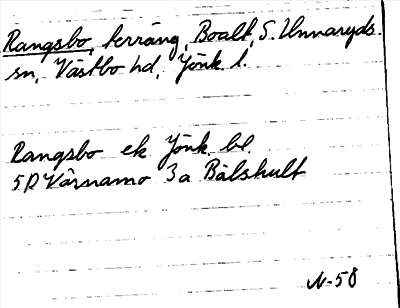 Rangsbo, terräng, Boalt, S. Unnaryds
sn, Västbo hd, Jönk. l.
Rangsbo ek Jönk. bl.
5D Värnamo 3a Bälshult
N-58